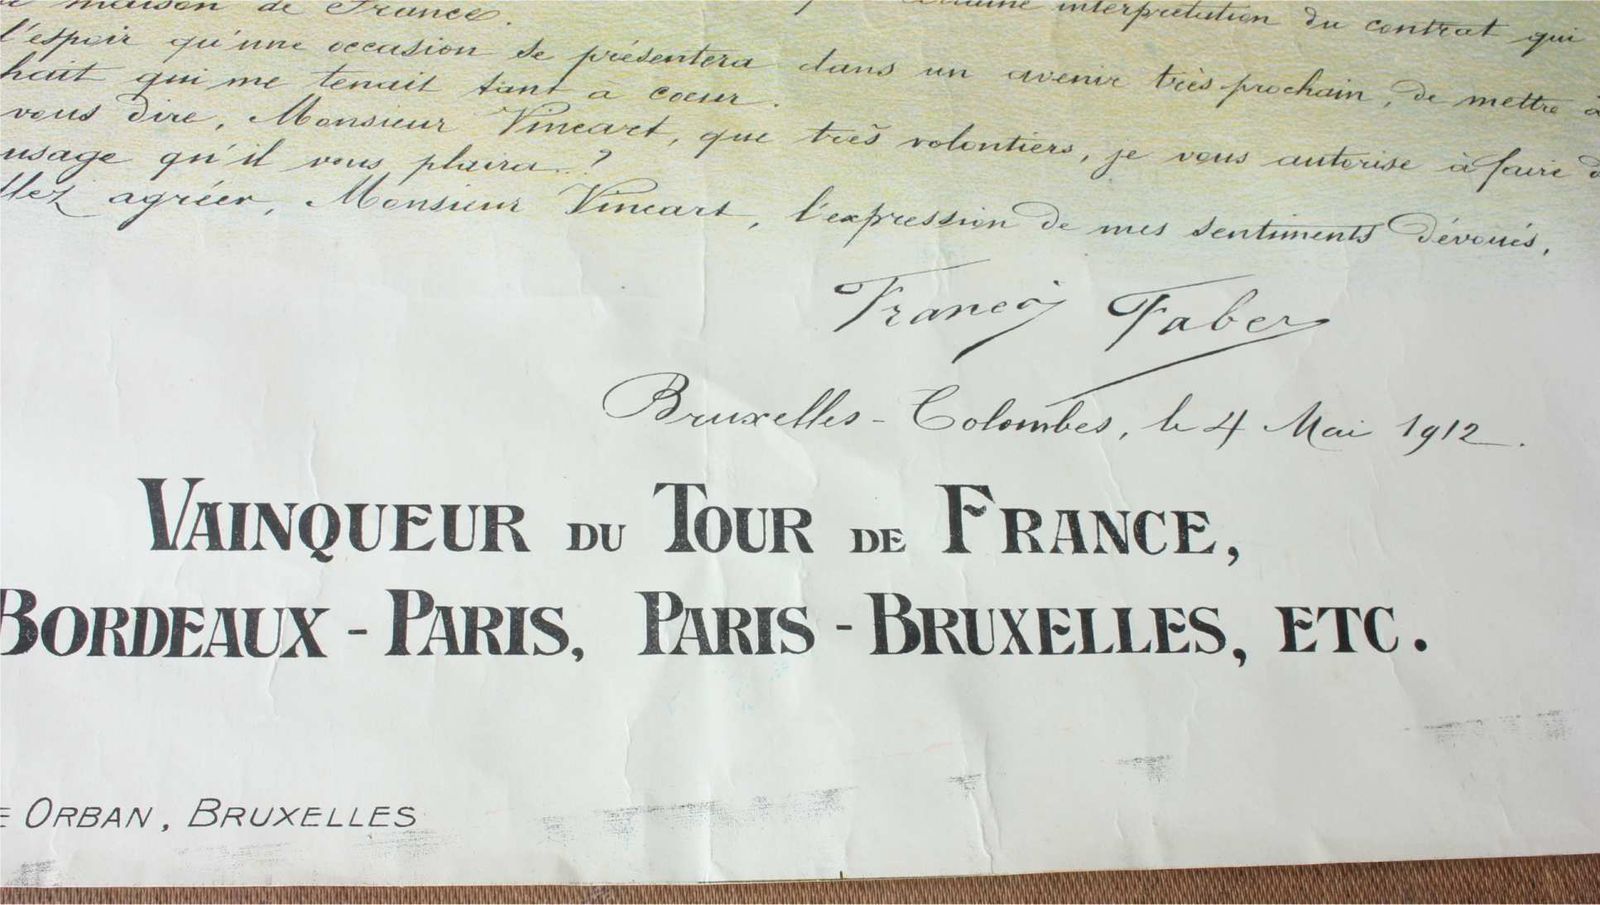 maison de France. interprétation du contrat qui
l'espoir qu'une occasion se présentera dans un avenir très prochain, de mettre à
hait qui me tenait tant a coeur.
vous dire, Monsieur Vincart, que très volontiers, je vous autorise à faire d
usage qu'il vous plaira ?
llez agréer, Monsieur Vincart, l'expression de mes sentiments dévoués,
François Faber
Bruxelles - Colombes, le 4 Mai 1912.
VAINQUEUR DU TOUR DE FRANCE,
BORDEAUX - PARIS, PARIS - BRUXELLES, ETC.
E ORBAN, BRUXELLES